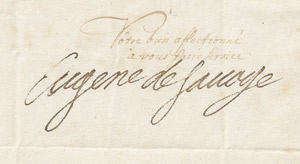 Votre bien affectionné
à vous faire service
Eugene de Savoye